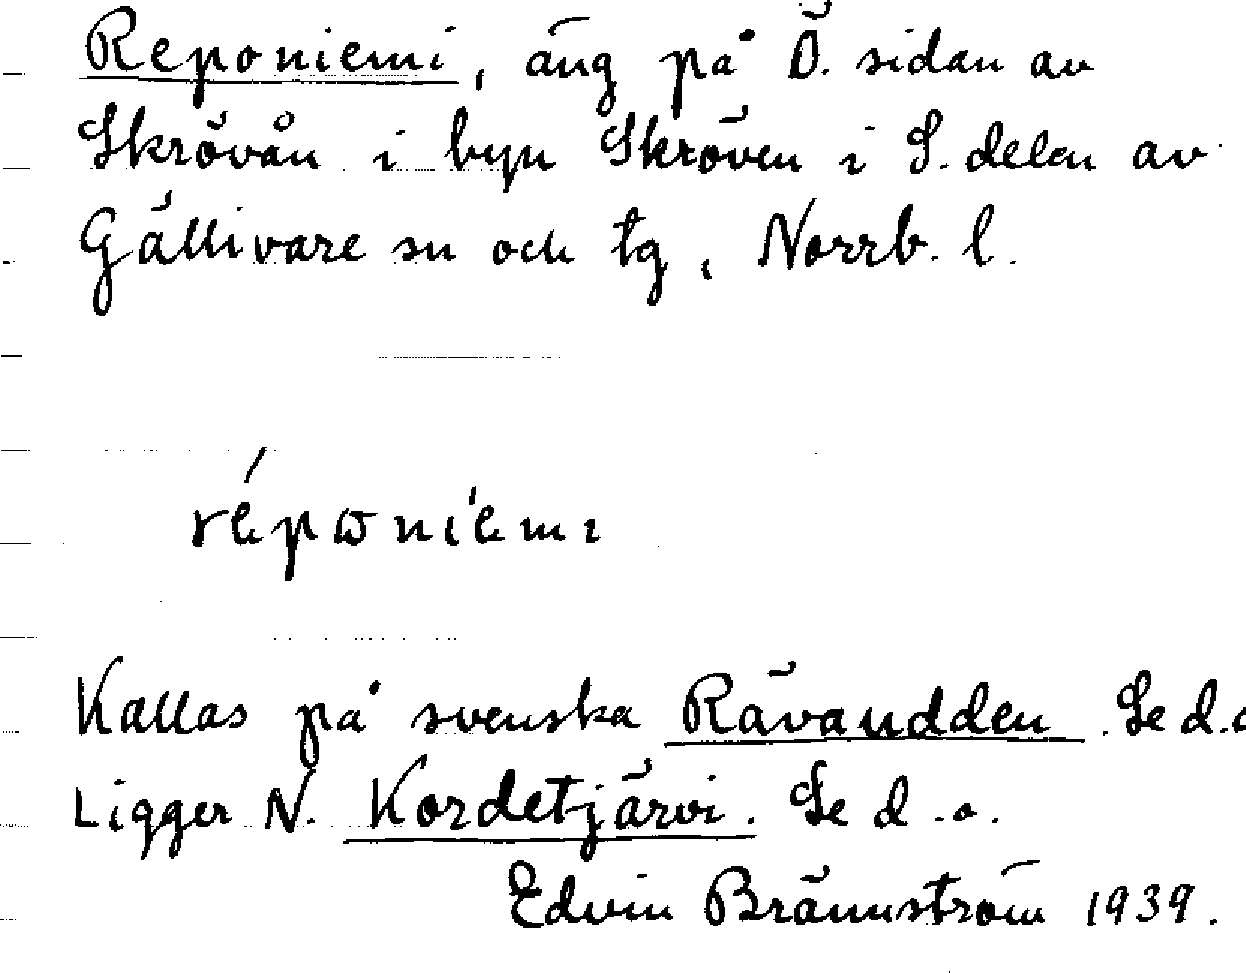 Reponiemi, äng på Ö. sidan av
Skrövån i byn Skröven i S. delen av
Gällivare sn och tg, Norrb. l.
réponiemi
Kallas på svenska Rävaudden. Se d.o
Ligger N. Kordetjärvi. Se d.o.
Edvin Brännström 1939.